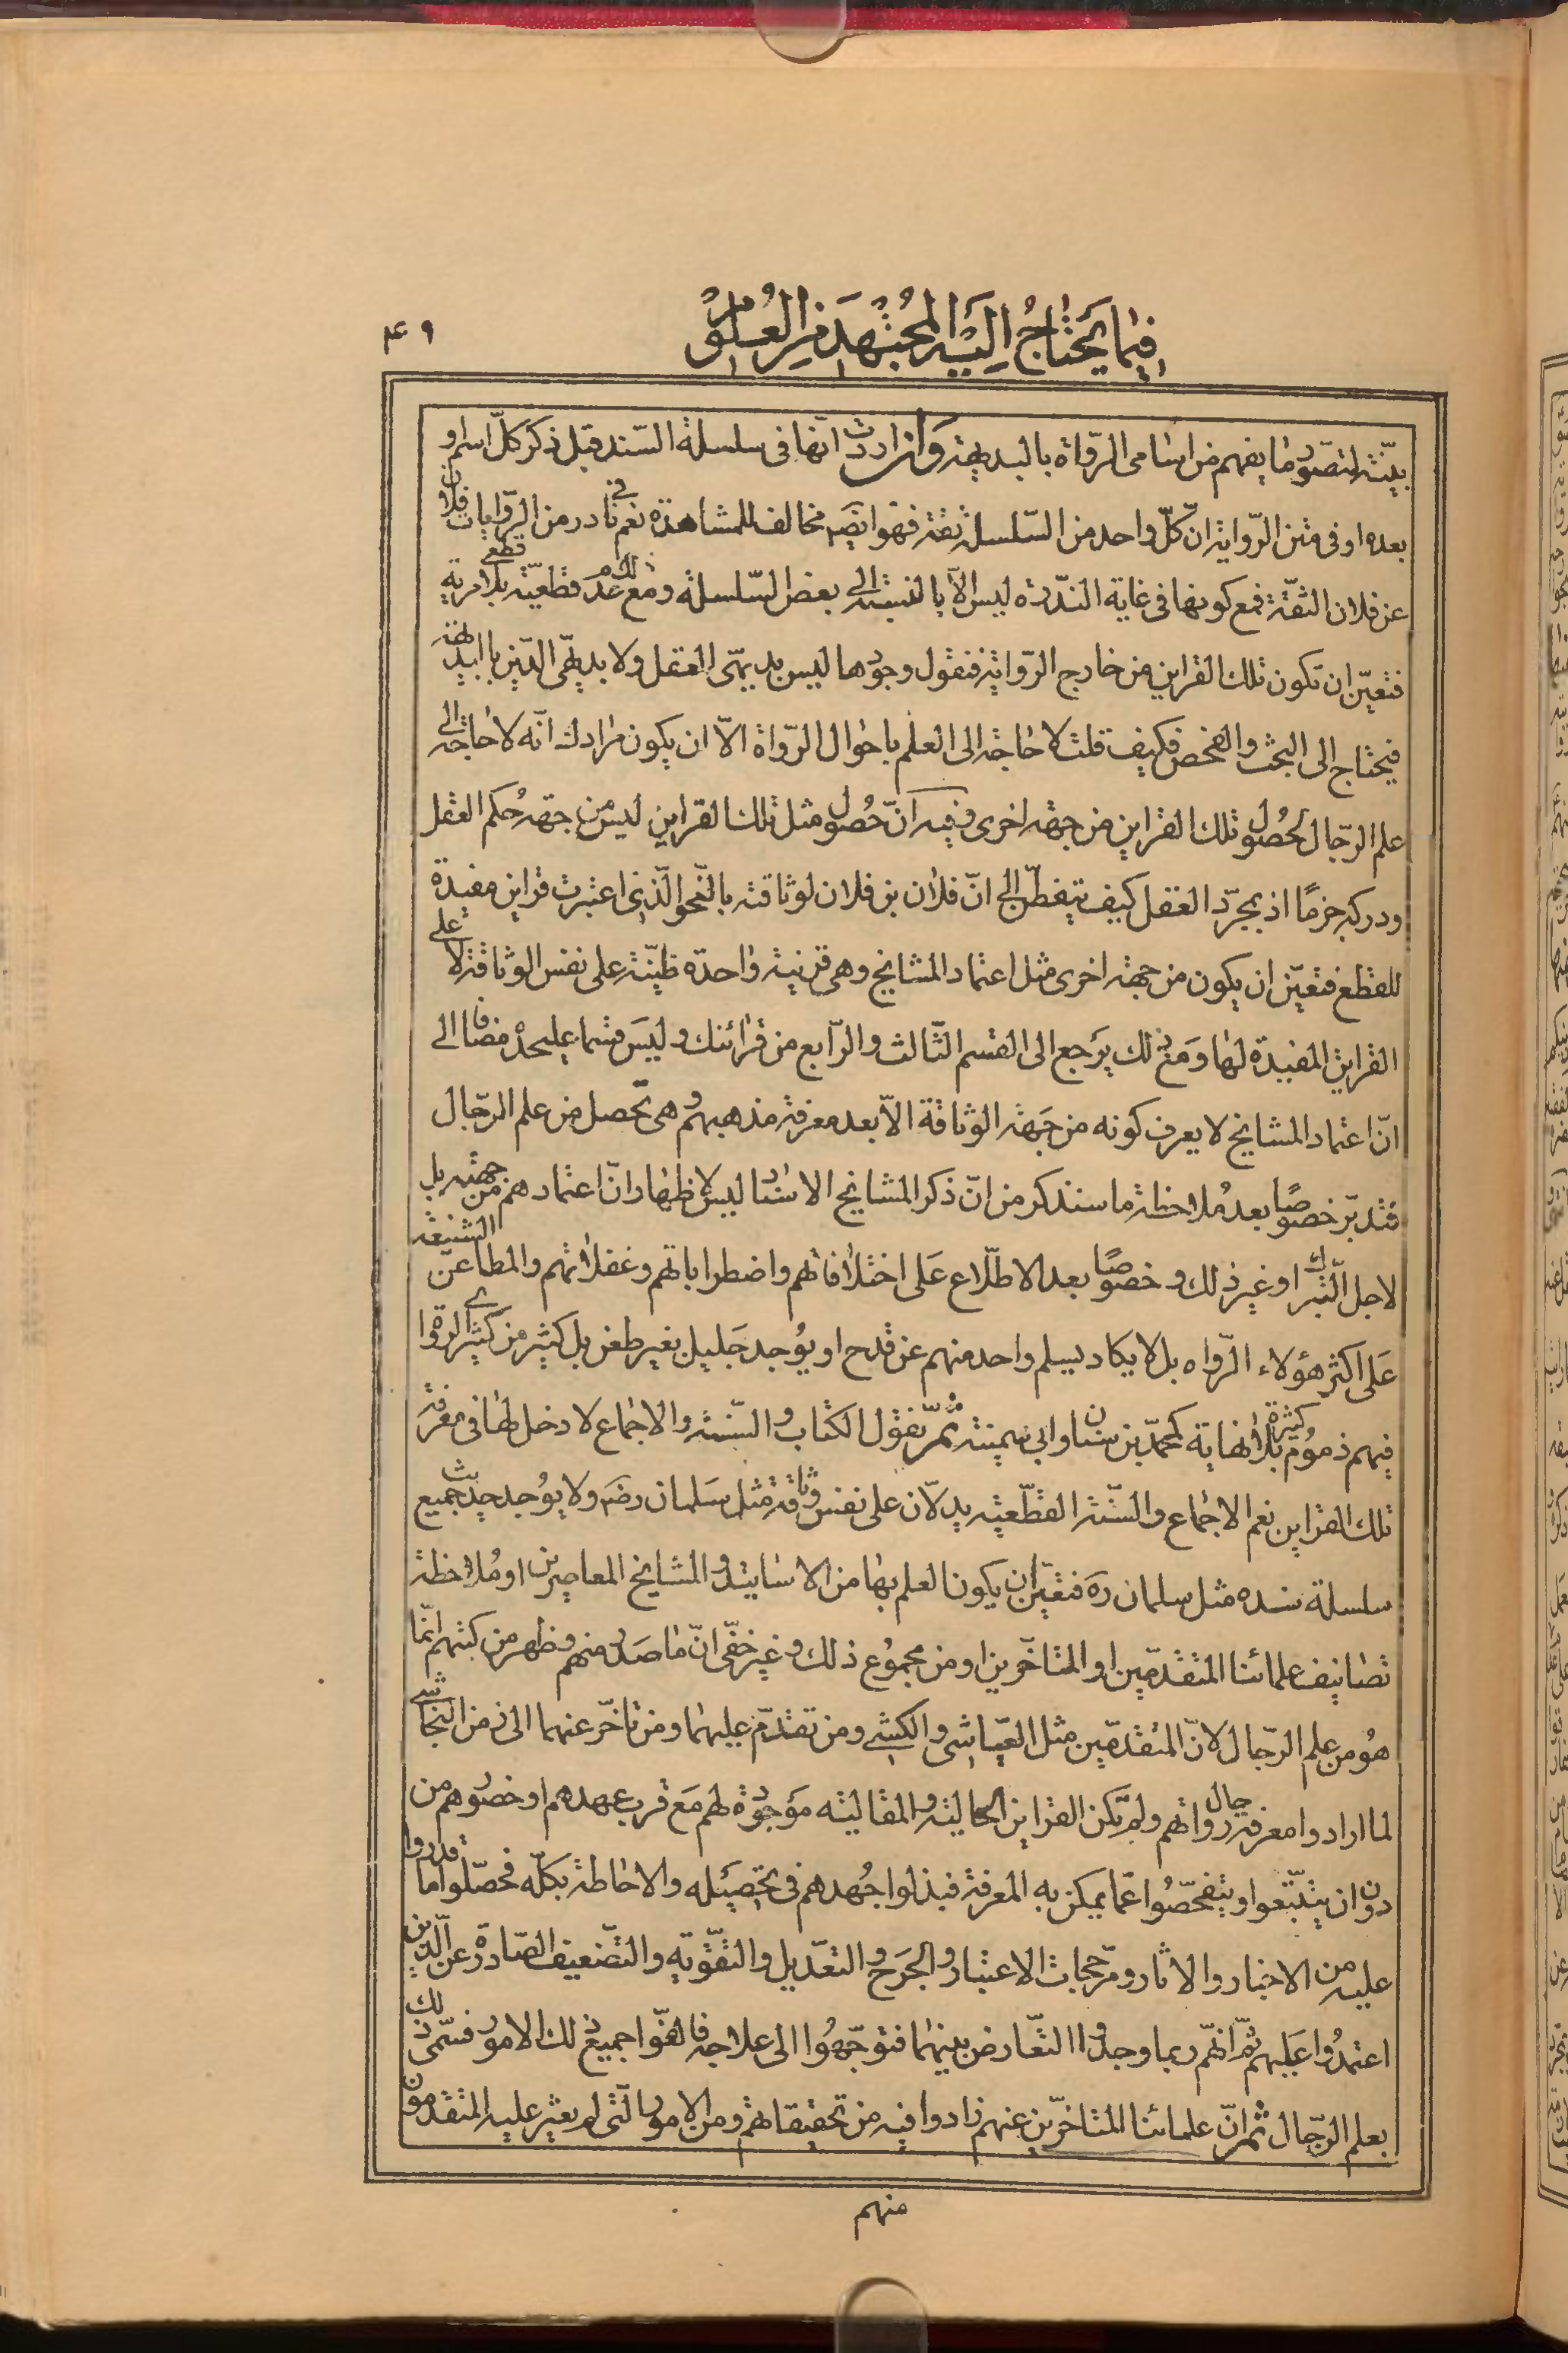 فيما يحتاج اليه المجتهد من العلوم
۴۹
بيّنة لتصوّر ما يفهم من اسامى الرّواة بالبديهة وان اردت انّها فى سلسلة السّند قبل ذكر كلّ اسم او
بعده او فى متن الرّواية انّ كلّ واحد من السّلسلة ثقة فهو ايضَه مخالف للمشاهدة نعم فى نادر من الرّوايات فلان
عن فلان الثقة فمع كونها فى غاية النّدرة ليس الّا بالنسبة الى بعض السّلسلة ومع ذلك عدم قطعيّته قطعى بلا مرية
فتعيّن ان تكون تلك القراين من خارج الرّواية فنقول وجودها ليس بديهىّ العقل ولا بديهىّ الدّين بالبديهة
فيحتاج الى البحث والفحص فكيف قلت لا حاجة الى العلم باحوال الرّواة الّا ان يكون مرادك انّه لا حاجة الى
علم الرّجال لحصول تلك القراين من جهة اخرى وفيه انّ حصول مثل تلك القراين ليس من جهة حكم العقل
ودركه جزمًا اذ بمجرّد العقل كيف يتفطّن الى انّ فلان بن فلان لوثاقته بالنّحو الّذى اعتبرت قراين مفيدة
للقطع فتعيّن ان يكون من جهة اخرى مثل اعتماد المشايخ وهى قرينة واحدة ظنّيّة على نفس الوثاقة لا على
القراين المفيدة لها ومع ذلك يرجع الى القسم الثّالث والرّابع من قرائنك وليس قسما عليحدة مضافا الى
انّ اعتماد المشايخ لا يعرف كونه من جهة الوثاقة الّا بعد معرفة مذهبهم وهى تحصل من علم الرّجال
فتدبّر خصوصًا بعد ملاحظة ما سنذكر من انّ ذكر المشايخ الاسناد ليس لاظهار انّ اعتمادهم من جهته بل
لاجل التّبرّك او غير ذلك وخصوصًا بعد الاطّلاع على اختلافاتهم واضطراباتهم وغفلاتهم والمطاعن الشنيعة
على اكثر هؤلاء الرّواه بل لا يكاد يسلم واحد منهم عن قدح او يوجد جليل بغير طعن بل كثير من كثيرى الرواة
فيهم ذموم كثيرة بلا نهاية كمحمّد بن سنان وابى سمينة ثمّ نقول الكتاب والسّنة والاجماع لا دخل لها فى معرفة
تلك القراين نعم الاجماع والسّنّة القطّعية يدلّان على نفس وثاقة مثل سلمان رضَه ولا يوجد حديث جميع
سلسلة سنده مثل سلمان رَه فتعيّن ان يكون العلم بها من الاسانيد والمشايخ المعاصرين او ملاحظة
تصانيف علمائنا المتقدّمين او المتاخّرين او من مجموع ذلك وغير خفّى انّ ما صدر منهم وظهر من كتبهم انّما
هو من علم الرّجال لانّ المتقدّمين مثل العيّاشى والكشى ومن تقدّم عليهما ومن تاخّر عنهما الى زمن النّجاشى
لما ارادوا معرفة رجال رواتهم ولم تكن القراين الحالية والمقالية موجودة لهم مع قرب عهدهم او حضورهم من
دون ان يتتبّعوا ويتفحّصوا عمّا يمكن به المعرفة فبذلوا جهدهم فى تحصيله والاحاطة بكلّه فحصّلوا ما قدروا
عليه من الاخبار والاثار ومرجّحات الاعتبار والجرح والتعّديل والتّقوية والتّضعيف الصّادرة عن الّذين
اعتمدوا عليهم ثمّ انّهم ربما وجدوا التّعارض بينهما فتوجّهوا الى علاجه فالفّوا جميع ذلك الامور فسمّى ذلك
بعلم الرّجال ثمّ انّ علمائنا المتاخّرين عنهم زادوا فيه من تحقيقاتهم ومن الامور الّتى لم يعثر عليه المتقدمون
منهم